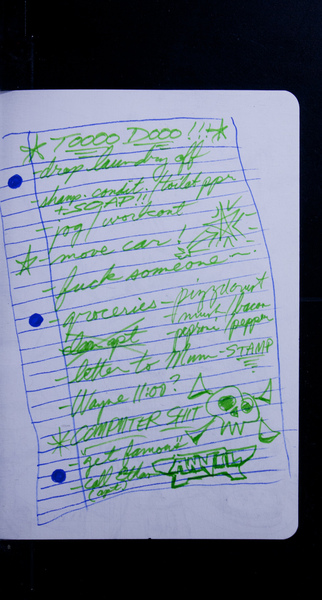 * TOOOO DOOO !!! *
- drop laundry off
- shamp. condit. / toilet pper
+ SOAP!!
- jog / workout
* - move car!
- fuck someone
- groceries - pizza
- mush / bacon
clean apt - peproni / pepper
- letter to Mum - STAMP
- Wayne 11:00?
* COMPUTER SHIT
- get famous
- call Ethan
(apt)
ANVIL